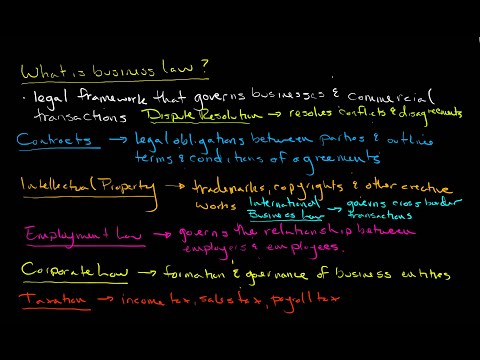 What is business law?
• legal framework that governs businesses & commercial
transactions Dispute Resolution → resolves conflicts & disagreements
Contracts → legal obligations between parties & outline
terms & conditions of agreements
Intellectual Property → trademarks, copyrights & other creative
works International Business Law → governs cross border transactions
Employment Law → governs the relationship between
employers & employees.
Corporate Law → formation & governance of business entities
Taxation → income tax, sales tax, payroll tax